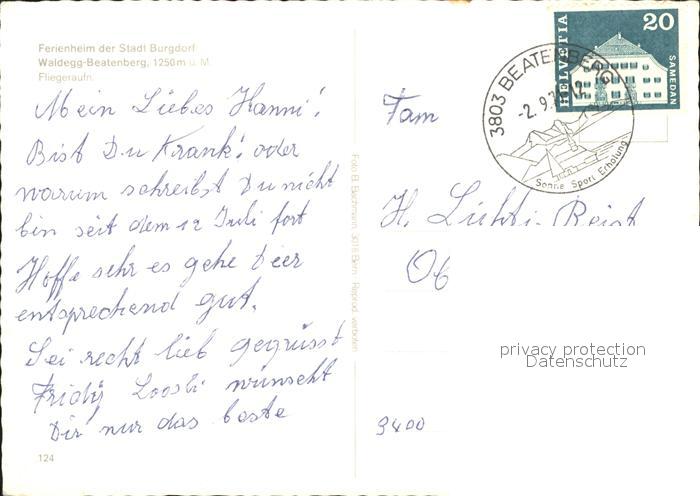 Ferienheim der Stadt Burgdorf
Waldegg-Beatenberg, 1250 m ü. M.
Fliegeraufn.
Mein Liebes Hanni!
Bist Du Krank! oder
warum schreibst Du nicht
bin seit dem 12 Juli fort
Hoffe sehr es gehe Dier
entsprechend gut.
Sei recht lieb gegrüsst
Fridy Loosli wünscht
Dir nur das beste
124
Foto B. Bachmann, 3018 Bern Reprod. verboten
HELVETIA
20
SAMEDAN
3803 BEATENBERG
-2. 9.
Sonne Sport Erholung
Fam
H. Lüthi-Reist
Ob
privacy protection
Datenschutz
3400